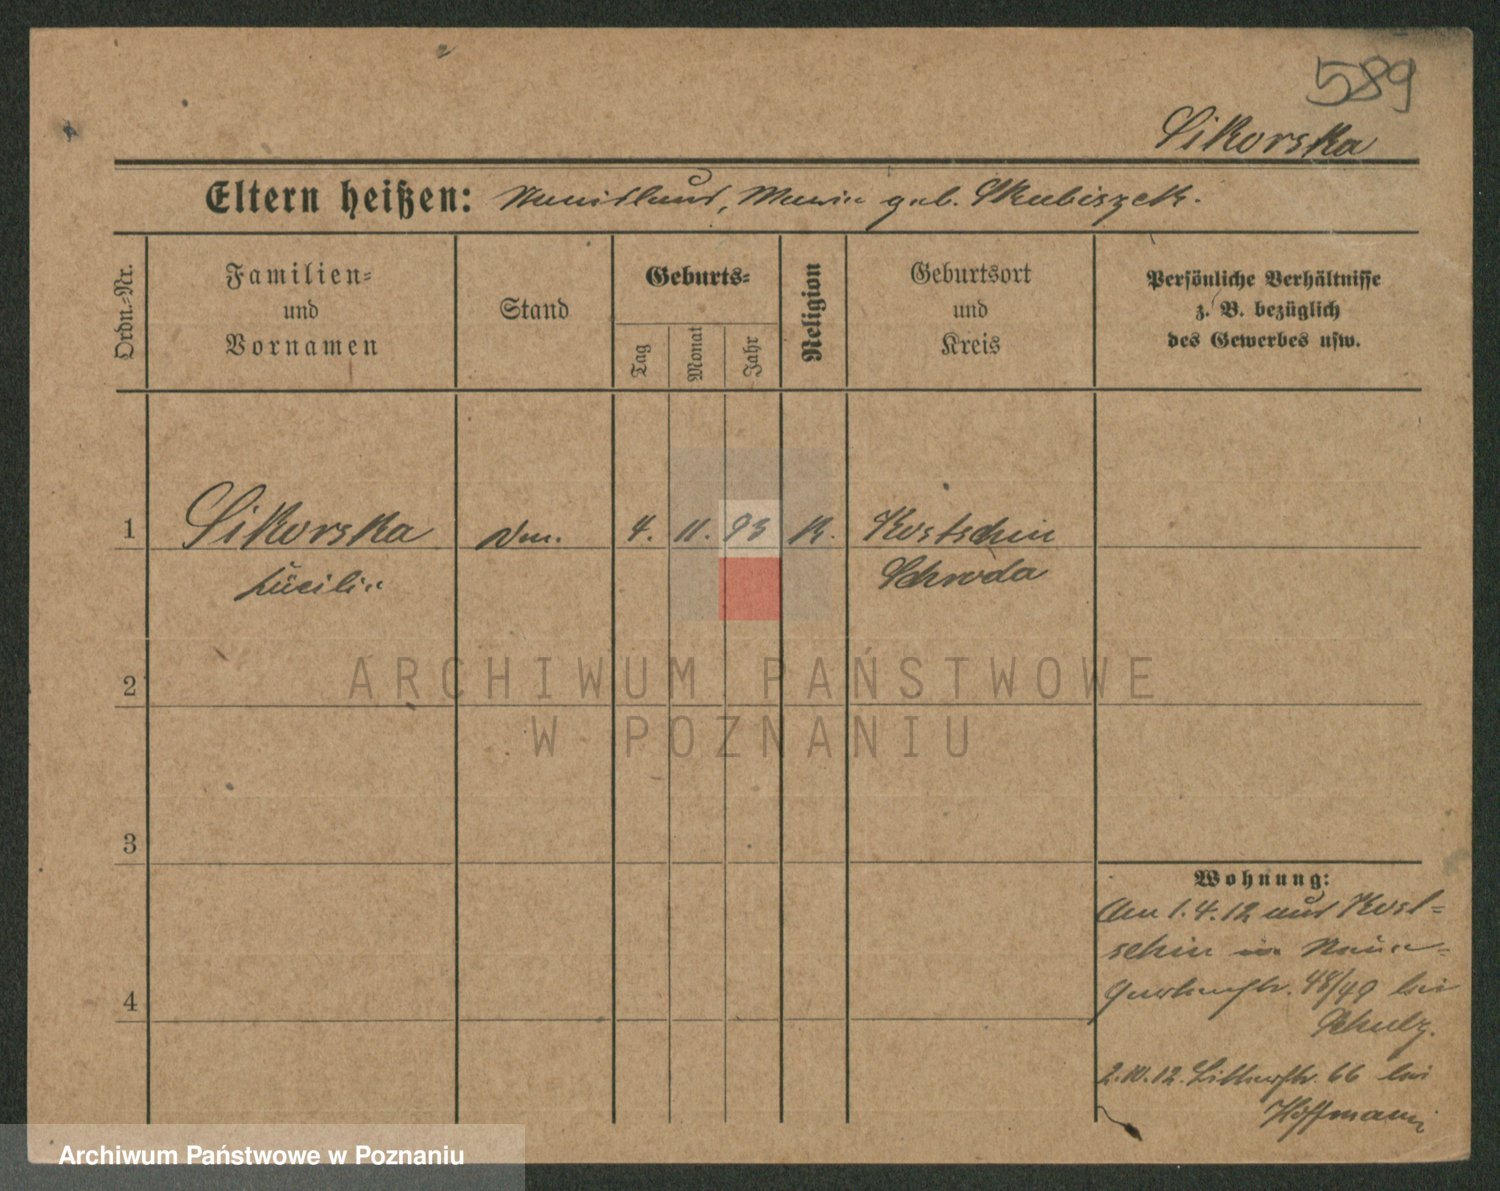 589
Sikorska
Eltern heißen: Stanislaus, Maria geb. Skubiszek.
Ordn.-Nr.
Familien-
und
Vornamen
Stand
Geburts-
Tag
Monat
Jahr
Religion
Geburtsort
und
Kreis
Persönliche Verhältnisse
z. B. bezüglich
des Gewerbes usw.
1 Sikorska 4. 11. 93 K. Kostschin
Cäcilie Schroda
2
3
4
Wohnung:
Am 1.4.12 aus Kost-
schin in
48/49 bei
Schulz.
2.10.12. 66 bei
Hoffmann
ARCHIWUM PAŃSTWOWE
W POZNANIU
Archiwum Państwowe w Poznaniu